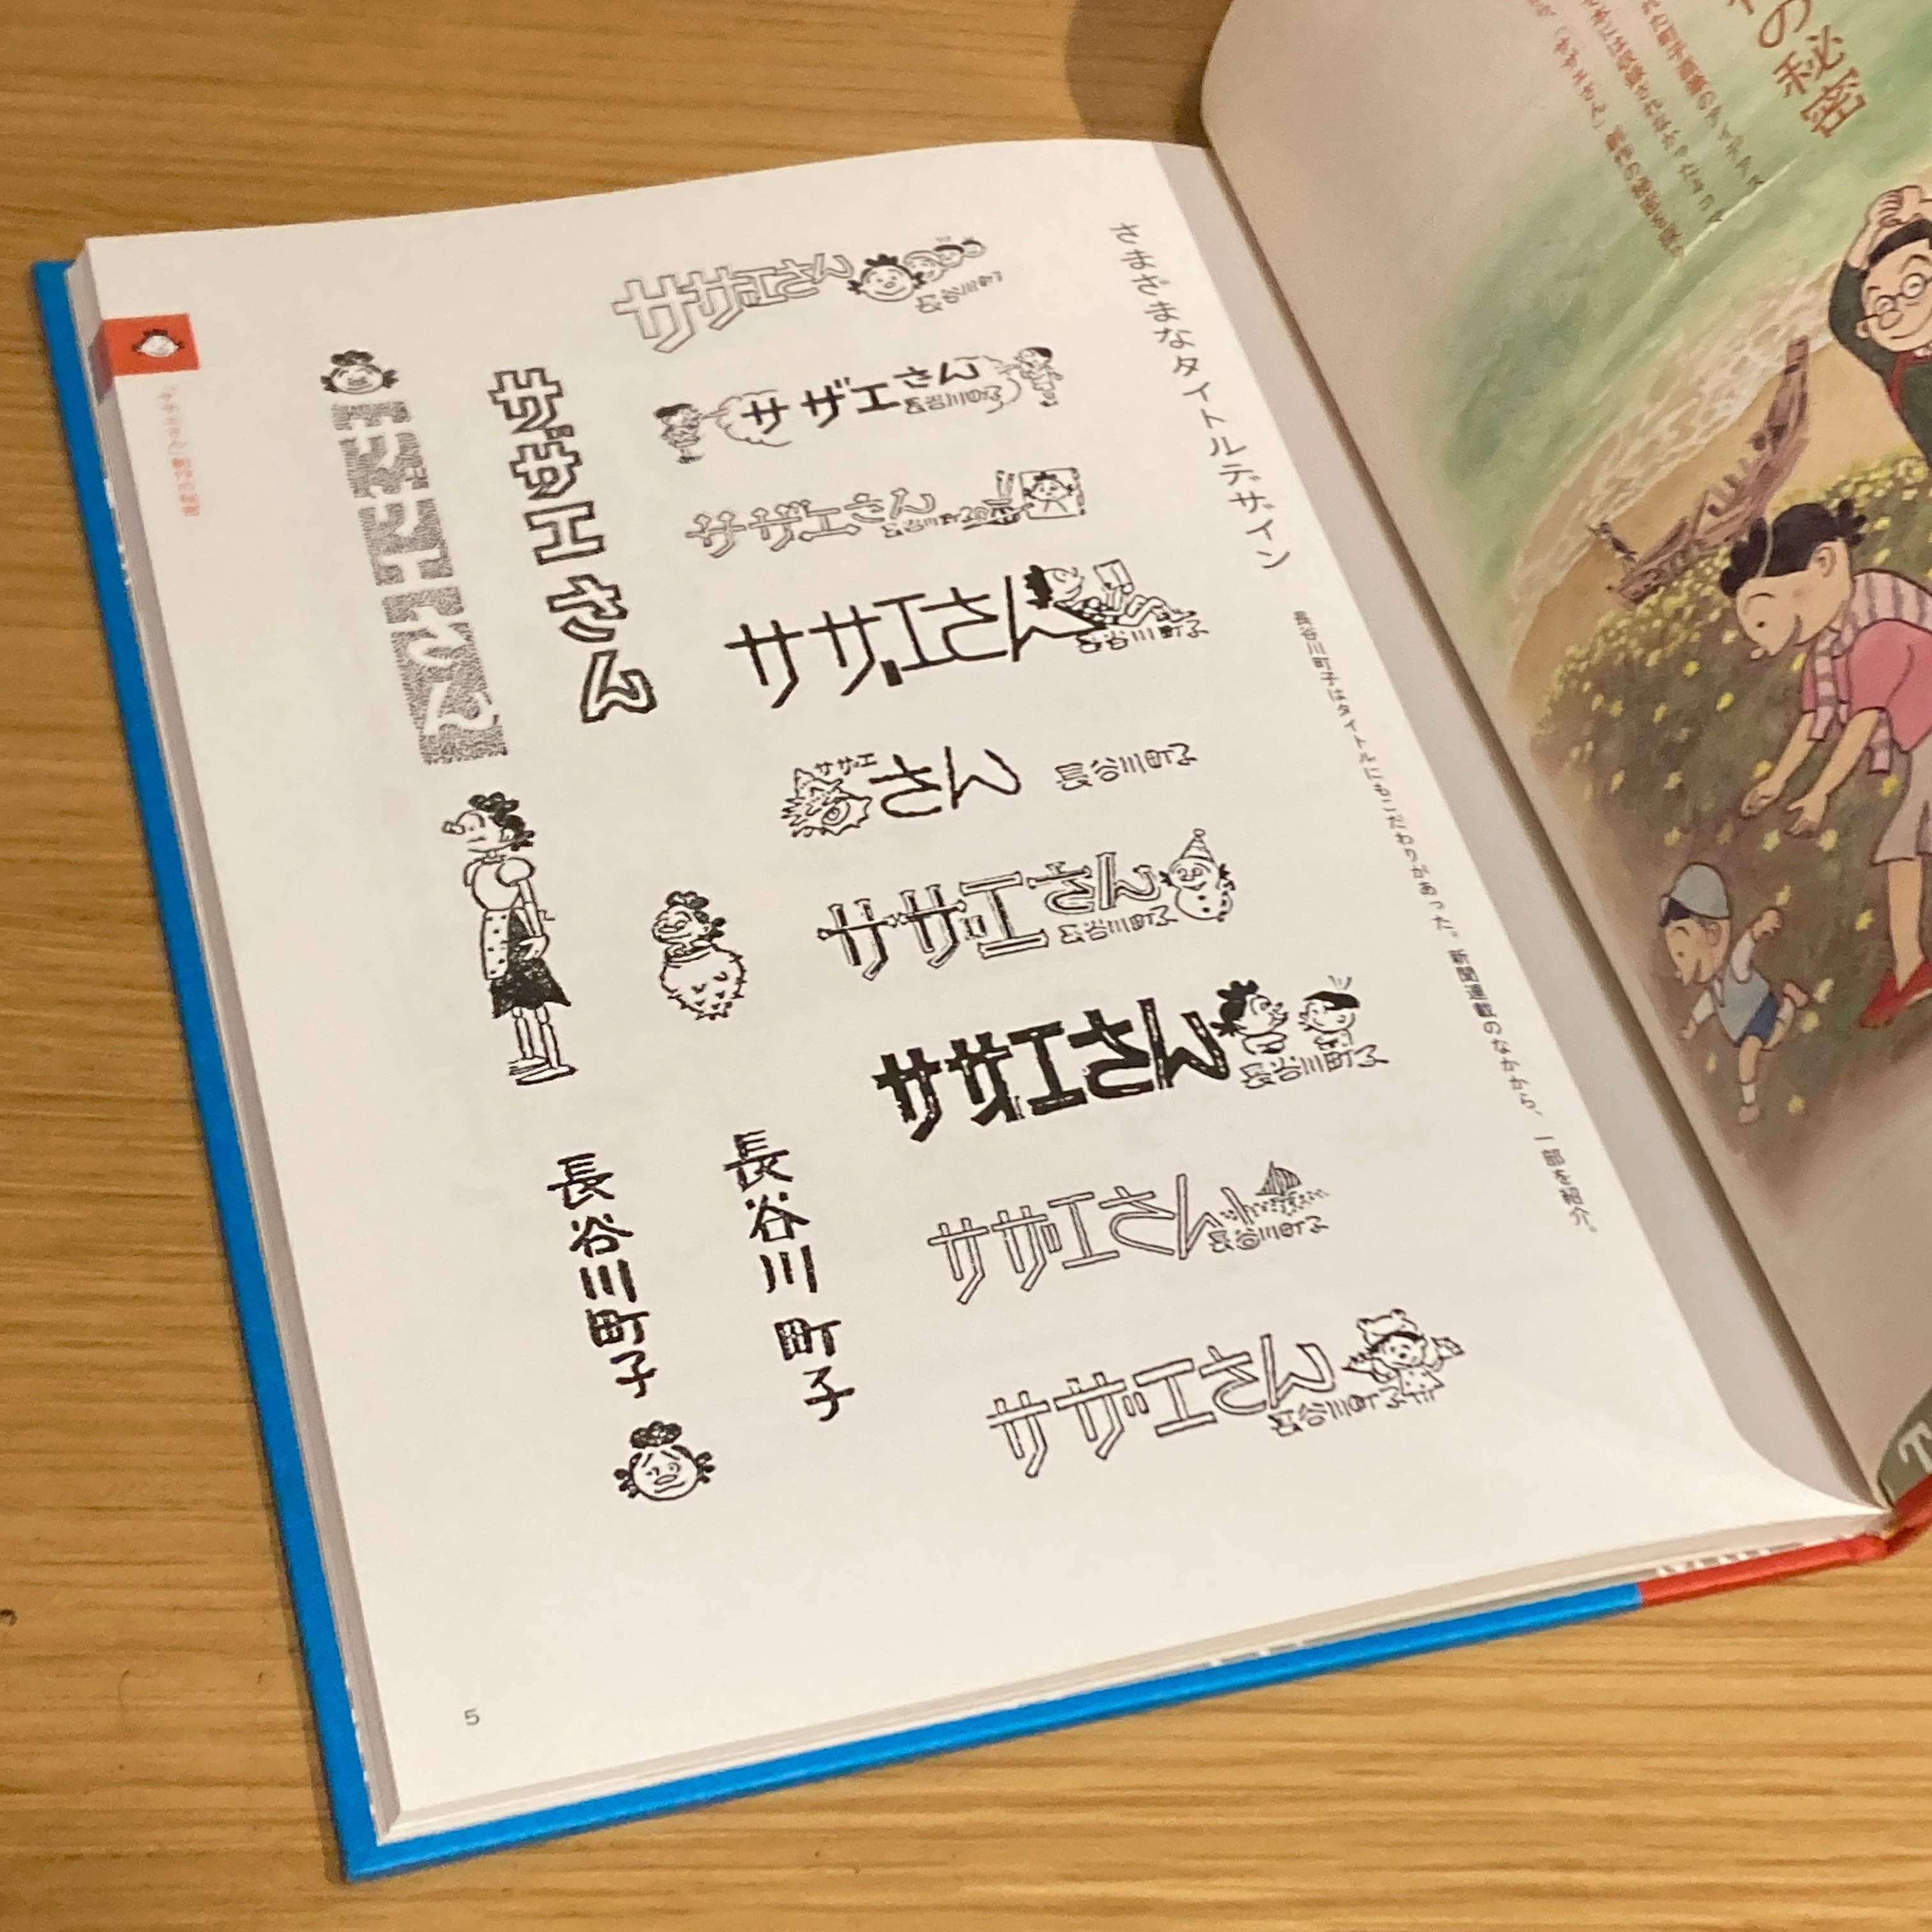 の秘密
さまざまなタイトルデザイン
長谷川町子はタイトルにもこだわりがあった。新聞連載のなかから、一部を紹介。
サザエさん
長谷川町子
サザエさん
長谷川町子
サザエさん
長谷川町子
サザエさん
長谷川町子
サザエさん
長谷川町子
サザエさん
長谷川町子
サザエさん
長谷川町子
サザエさん
長谷川町子
サザエさん
長谷川町子
サザエさん
長谷川町子
サザエさん
長谷川町子
5